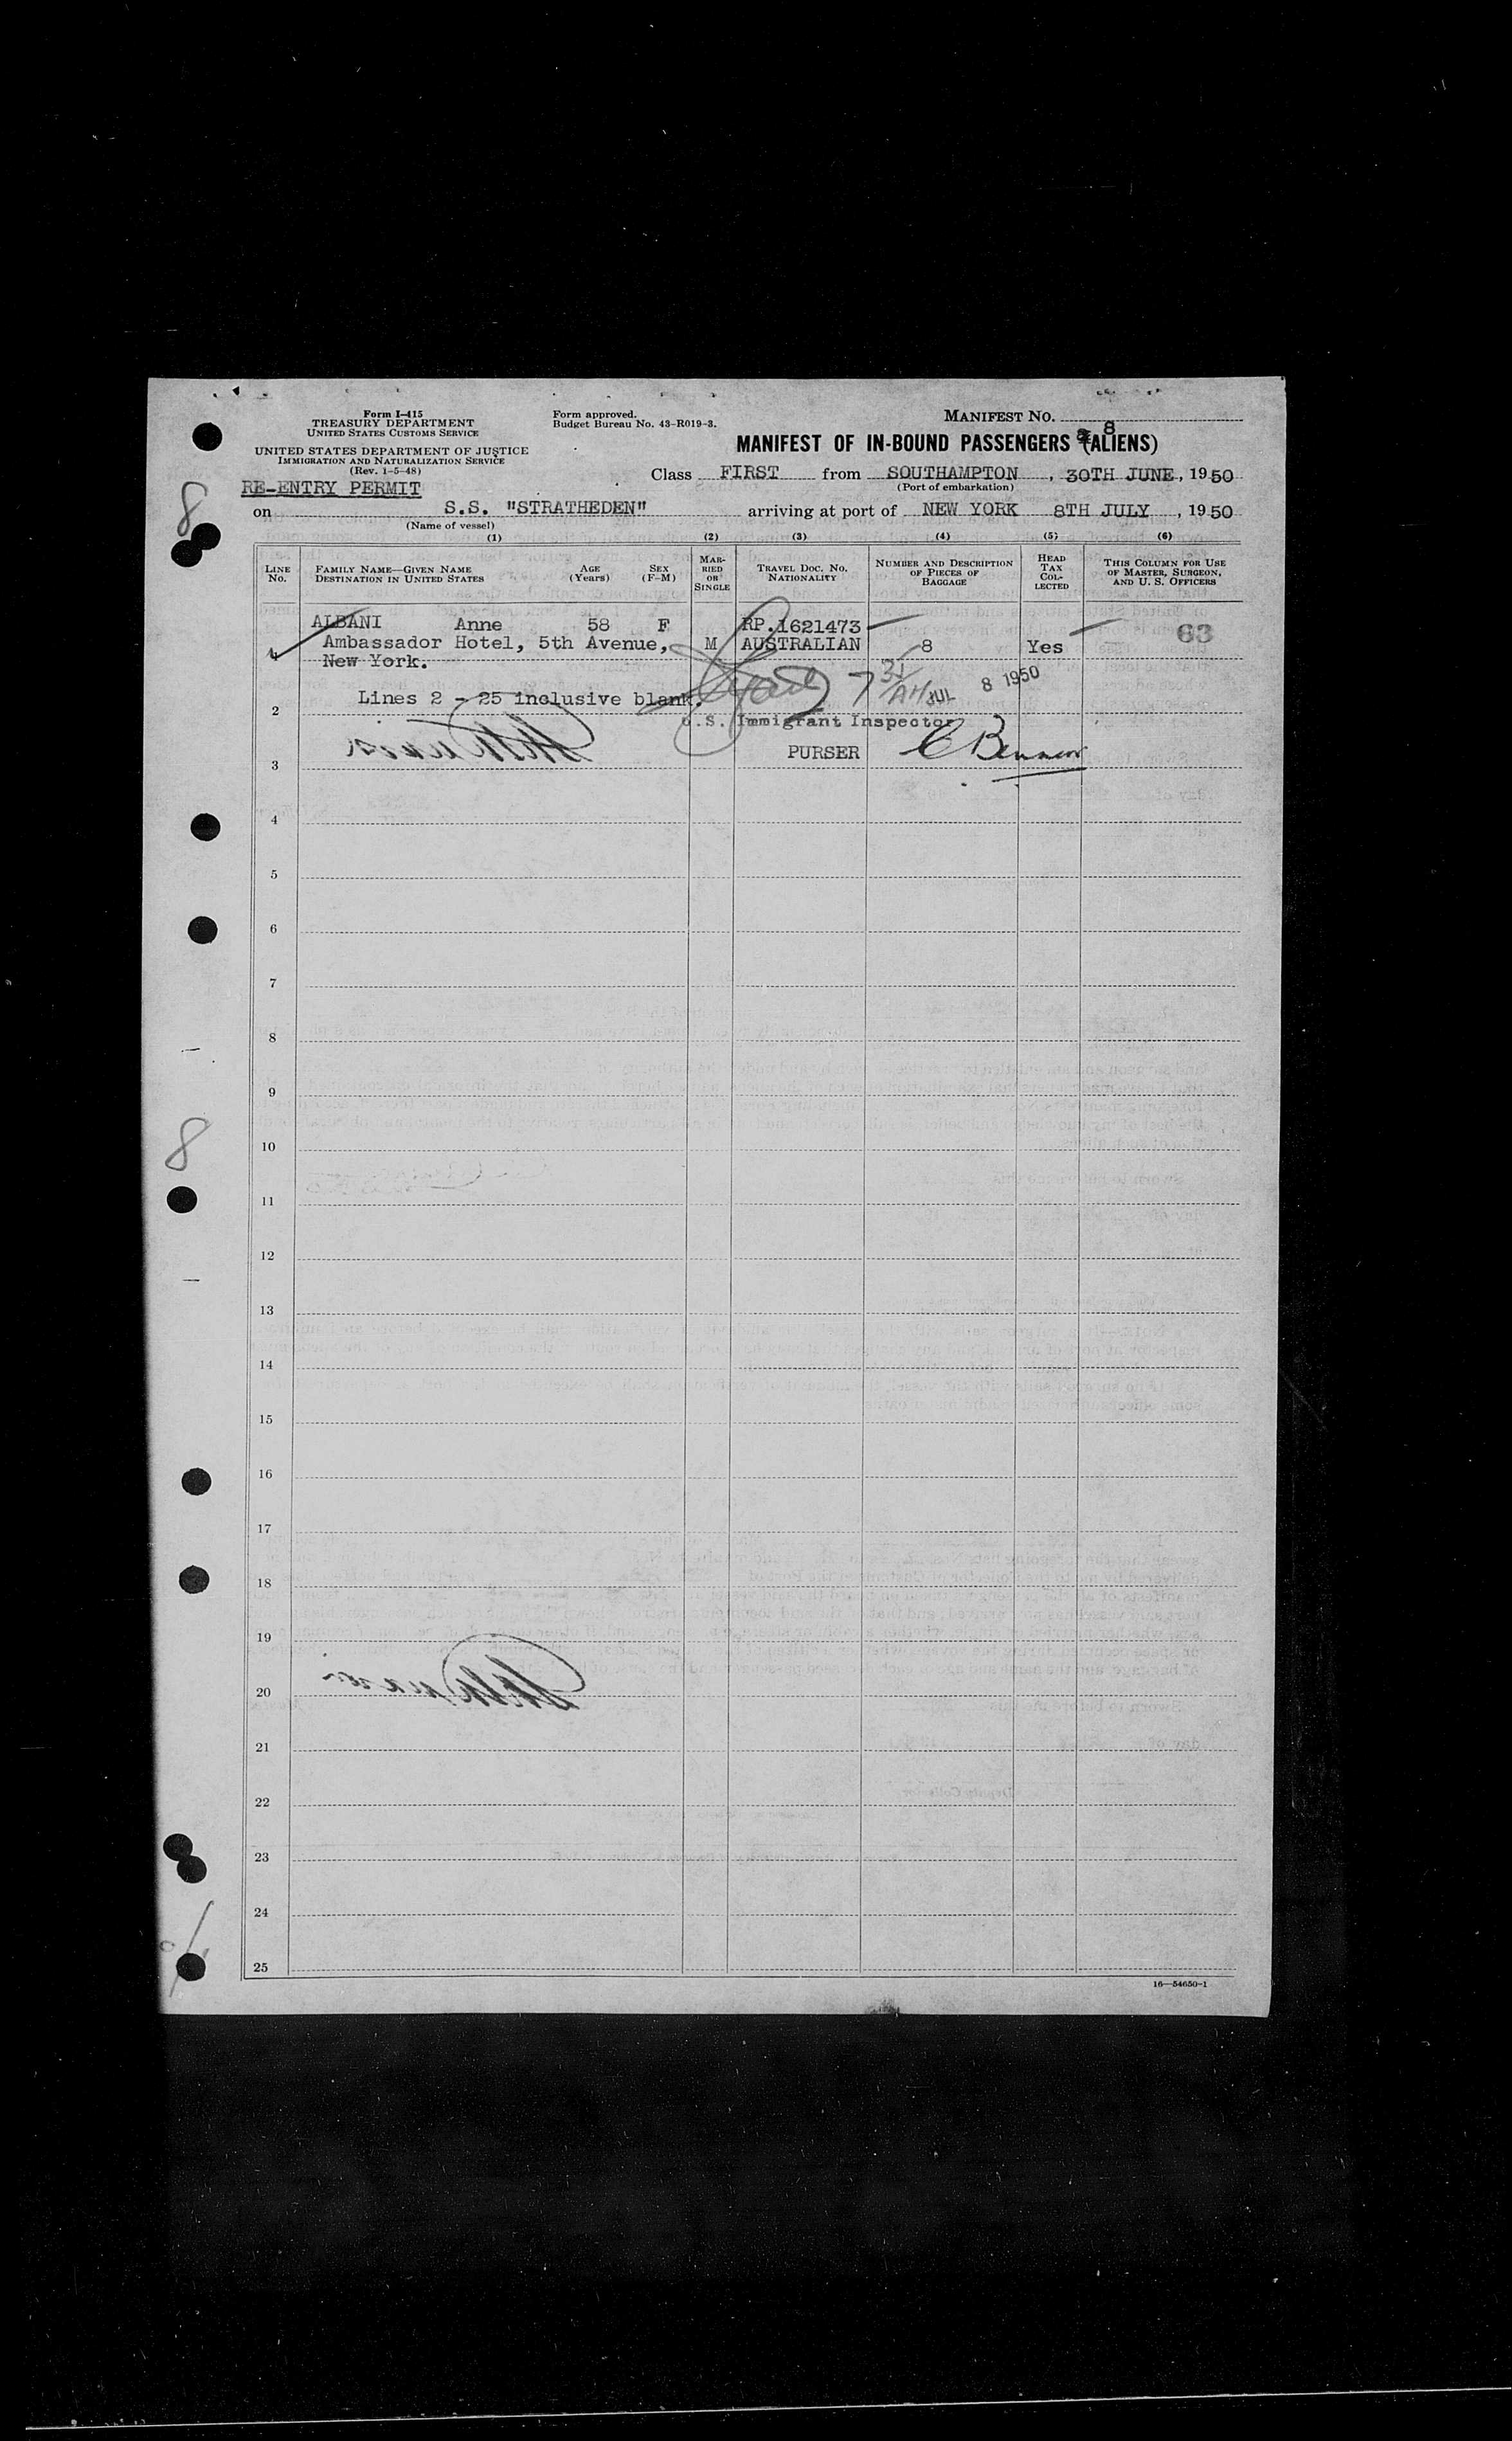 Form I-415
TREASURY DEPARTMENT
UNITED STATES CUSTOMS SERVICE
UNITED STATES DEPARTMENT OF JUSTICE
IMMIGRATION AND NATURALIZATION SERVICE
(Rev. 1-5-48)
RE-ENTRY PERMIT
Form approved.
Budget Bureau No. 43-R019-3.
MANIFEST NO.
8
MANIFEST OF IN-BOUND PASSENGERS (ALIENS)
Class FIRST from SOUTHAMPTON, 30TH JUNE, 1950
(Port of embarkation)
on S.S. "STRATHEDEN" arriving at port of NEW YORK 8TH JULY, 1950
(Name of vessel)
(1) (2) (3) (4) (5) (6)
LINE NO.
FAMILY NAME—GIVEN NAME
DESTINATION IN UNITED STATES
AGE (Years)
SEX (F-M)
MARRIED OR SINGLE
TRAVEL DOC. NO.
NATIONALITY
NUMBER AND DESCRIPTION OF PIECES OF BAGGAGE
HEAD TAX COLLECTED
THIS COLUMN FOR USE OF MASTER, SURGEON, AND U. S. OFFICERS
ALBANI Anne 58 F RP.1621473 63
Ambassador Hotel, 5th Avenue, M AUSTRALIAN 8 Yes
New York.
JUL 8 1950
Lines 2 - 25 inclusive blank.
2
U.S. Immigrant Inspector
PURSER
3
4
5
6
7
8
9
10
11
12
13
14
15
16
17
18
19
20
21
22
23
24
25
16—54650-1
8
8